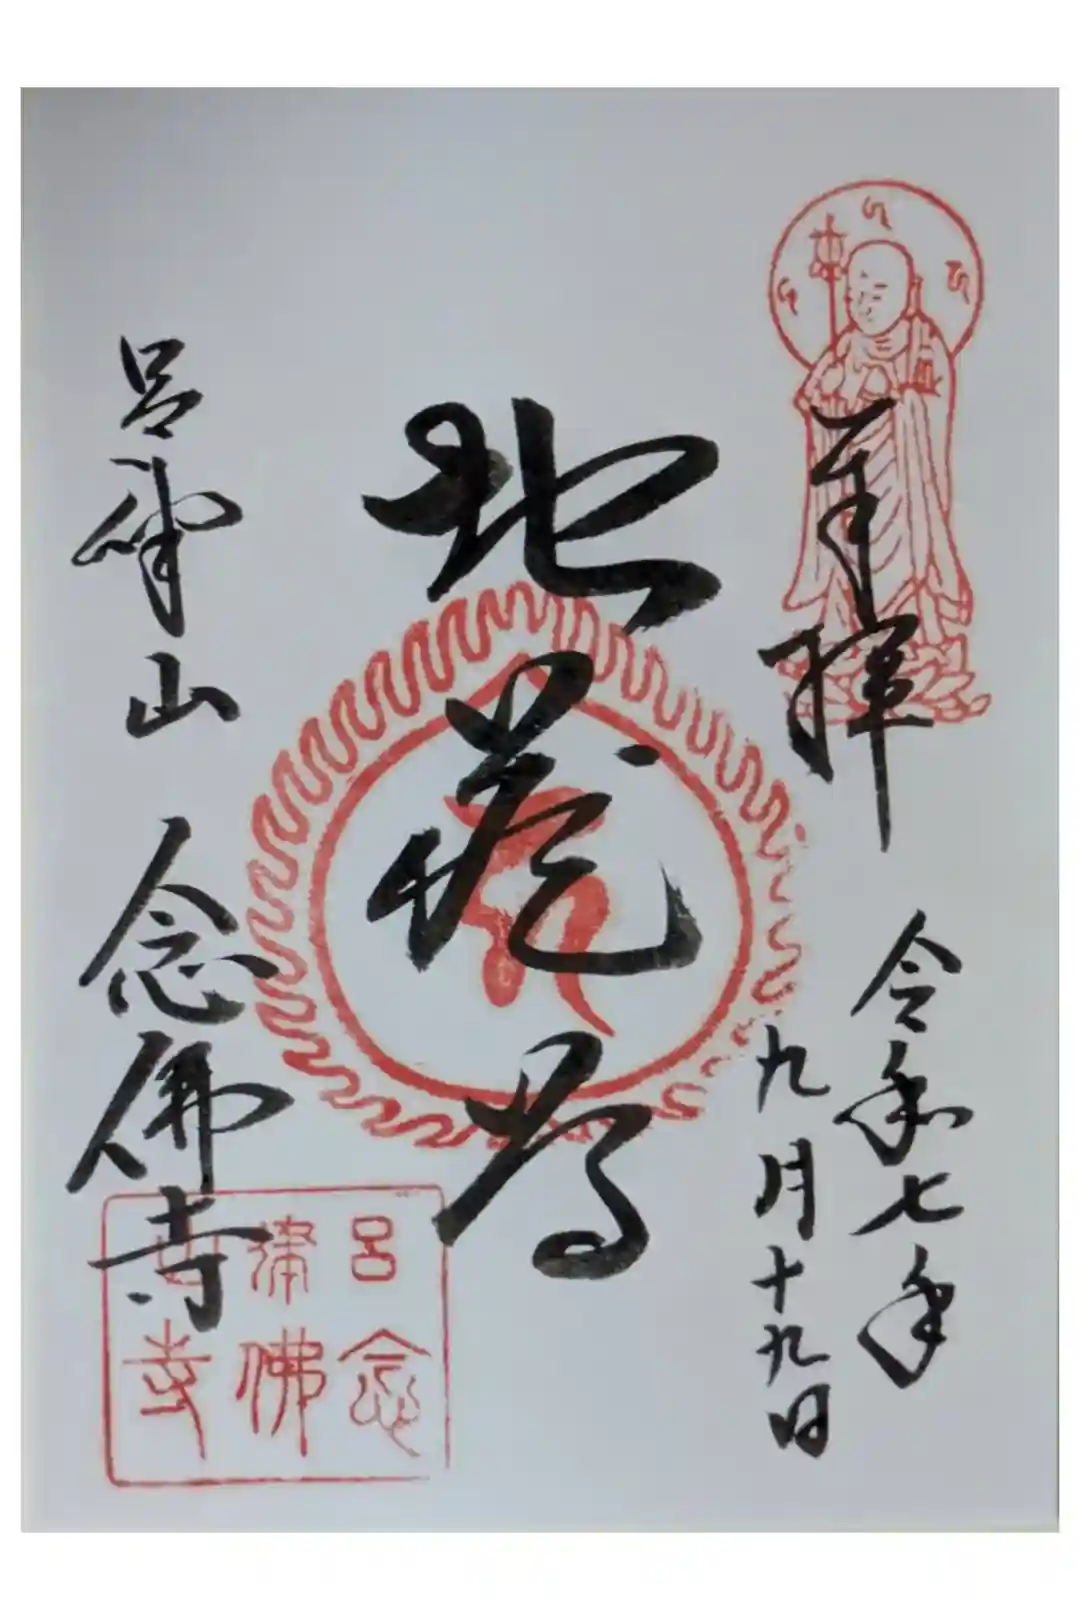 奉拝
令和七年
九月十九日
地蔵尊
呂峰山 念佛寺
呂峰山
念佛寺